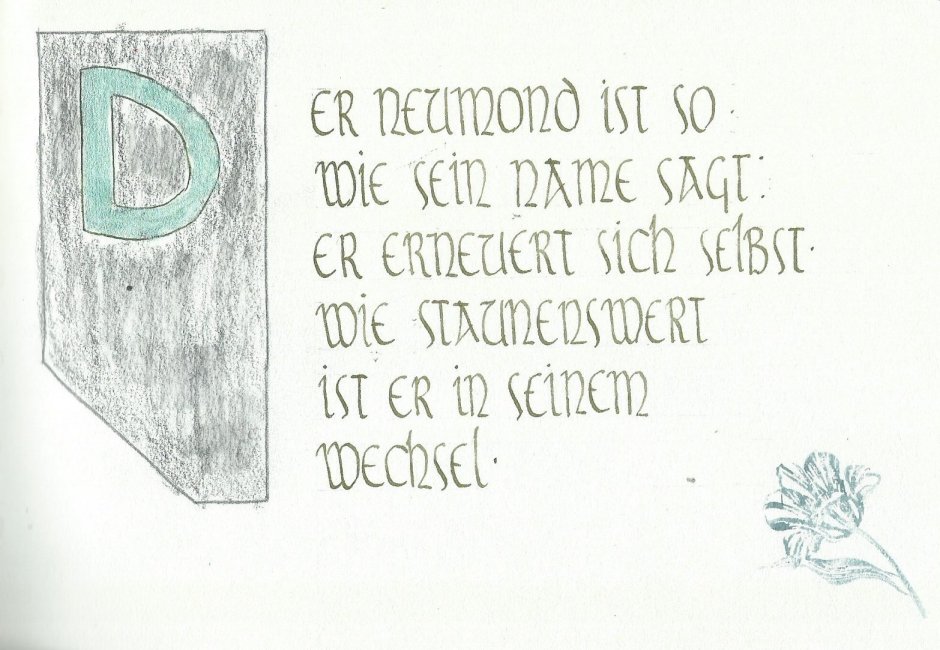 DER NEUMOND IST SO·
WIE SEIN NAME SAGT:
ER ERNEUERT SICH SELBST·
WIE STAUNENSWERT
IST ER IN SEINEM
WECHSEL·